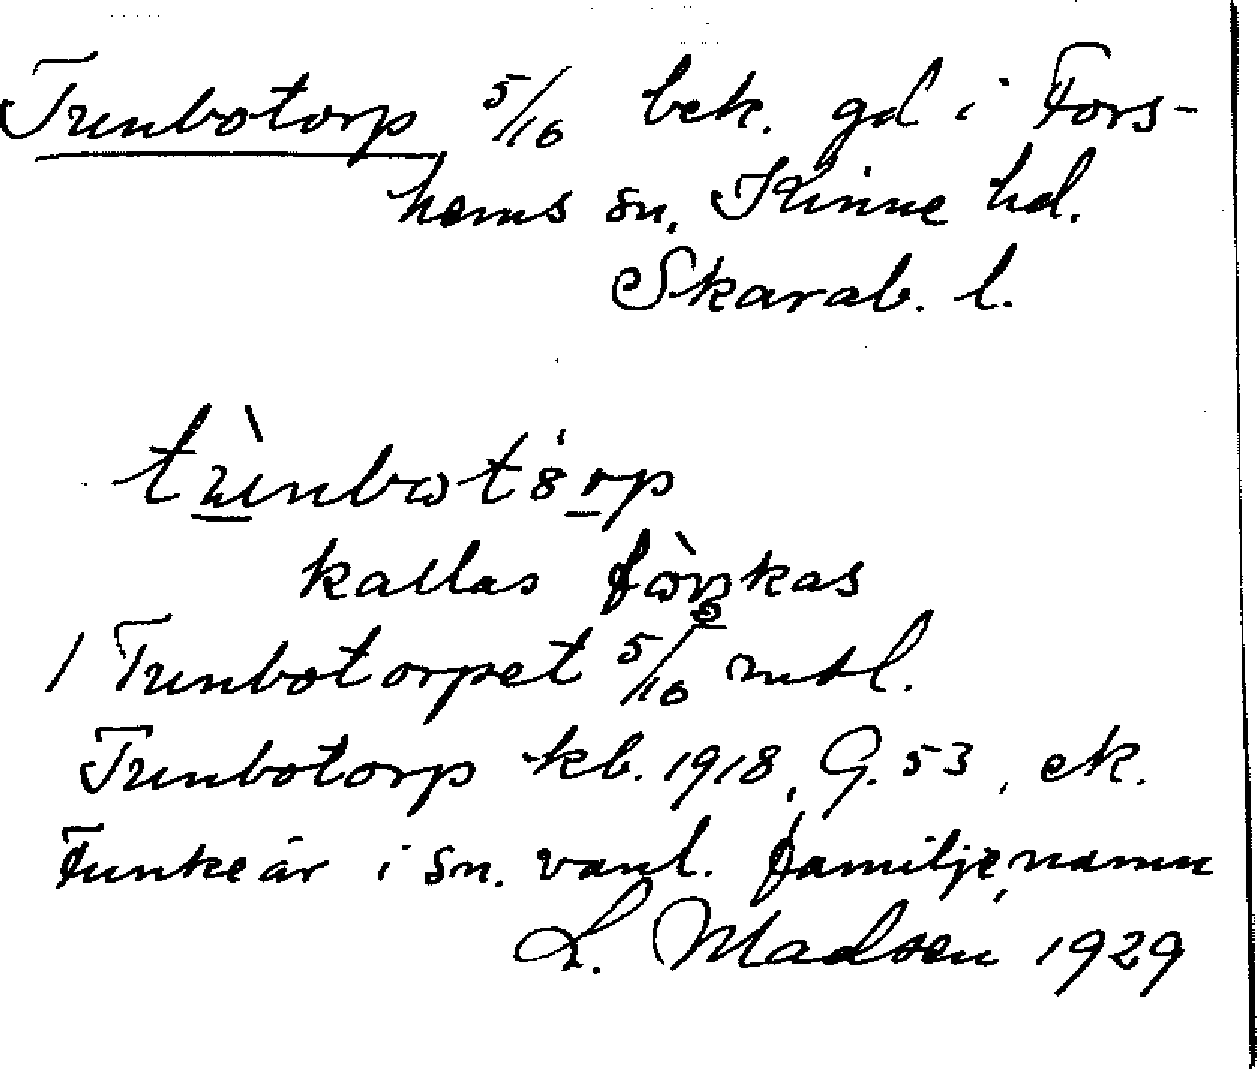 Trenbotorp 5/16 bek. gd i Fors-
hems sn. Kinne hd.
Skarab. l.
kallas
1 Trenbotorpet 5/16 mtl.
Trenbotorp kb. 1918, G. 53, ek.
Funke är i sn. vanl. familjenamn
L. Madsen 1929